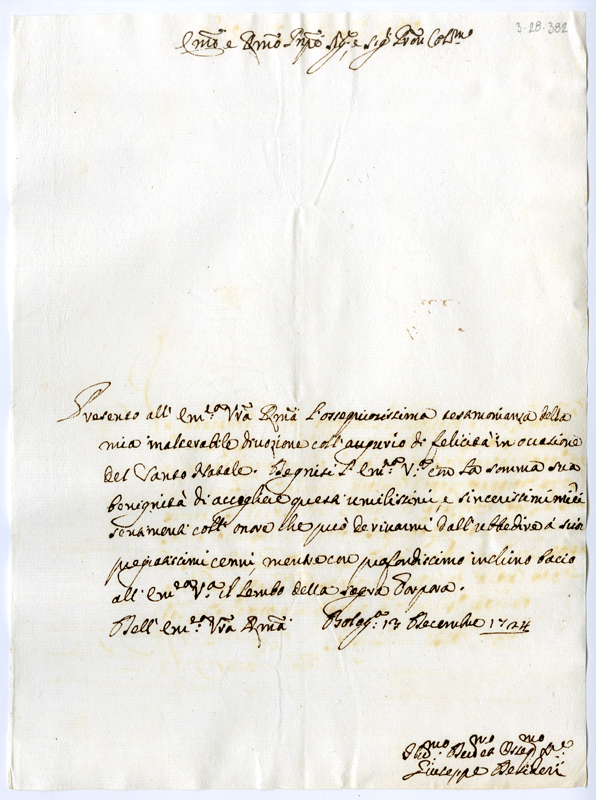 3-28-382
Em̃o e Rm̃o Prñpe Sig.r, e Sig.r Pron Col.mo
Presento all' Em.za Vr̃a Rm̃a l'ossequiosissima testimonianza della
mia inalterabile divozione coll' augurio di felicità in occasione
del Santo Natale. Degnisi l' Em.za V.ra con la somma sua
benignità di accogliere questi umilissimi, e sincerissimi miei
sentimenti coll' onore che può derivarmi dall' ubbedire a suoi
pregiatissimi cenni mentre con profondissimo inchino bacio
all' Em.za V.ra il Lembo della sagra Porpora.
Dell' Em.za Vr̃a Rm̃a Bolog.a 13 Decembre 1724
Giuseppe